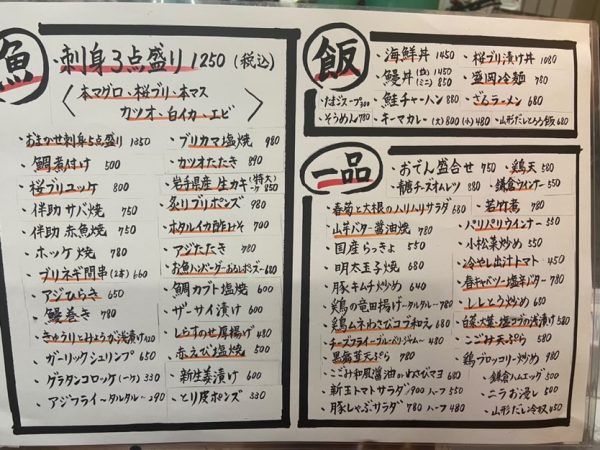 魚
・刺身3点盛り 1250(税込)
〈本マグロ・桜ブリ・本マス
カツオ・白イカ・エビ〉
・おまかせ刺身5点盛り 1350
・鯛煮付け 500
・桜ブリユッケ 800
・伴助 サバ焼 750
・伴助 赤魚焼 750
・ホッケ焼 780
・ブリネギ間串(2本) 660
・アジひらき 650
・鰻巻き 780
・きゅうりとみょうが浅漬け 420
・ガーリックシュリンプ 650
・グラタンコロッケ(一ケ) 330
・アジフライータルタルー 290
・ブリカマ塩焼 980
・カツオたたき 890
・岩手県産 生カキ(特大)一ケ 850
・炙りブリポンズ 980
・ホタルイカ酢みそ 700
・アジたたき 780
・お魚ハンバーグーおろしポンズー 680
・鯛カブト塩焼 600
・ザーサイ漬け 500
・しらすのせ厚揚げ 480
・赤えび塩焼 500
・新生姜漬け 600
・とり皮ポンズ 330
飯
・海鮮丼 1450
・鰻丼 (並) 1450 (ミニ) 850
・鮭チャーハン 880
・たまごスープ 300
・そうめん 780
・キーマカレー (大) 800 (小) 480
・桜ブリ漬け丼 1080
・盛岡冷麺 780
・ざるラーメン 680
・山形だしとろろ飯 680
一品
・おでん盛合せ 750
・鶏天 580
・青唐チーズオムレツ 580
・鎌倉ウインナー 550
・春菊と大根のハリハリサラダ 680
・若竹蒿
・山芋バター醤油焼 780
・国産らっきょ 550
・明太玉子焼 680
・豚キムチ炒め 580
・鶏の竜田揚げータルタルー 780
・鶏ムネわさびコブ和え 680
・黒舞茸天ぷら 780
・ごごみ和風醤油orわさびマヨ 680
・新玉トマトサラダ 900 ハーフ 550
・豚しゃぶサラダ 780 ハーフ 480
・パリパリウインナー 550
・小松菜炒め 550
・冷やし出汁トマト 450
・春キャベツー塩辛バター 780
・ししとう炒め 680
・白菜・大葉・塩コブの浅漬け 580
・ごごみ天ぷら 580
・鶏ブロッコリー炒め 980
・鎌倉ハムエッグ 500
・ニラお浸し 500
・山形だし冷奴 450